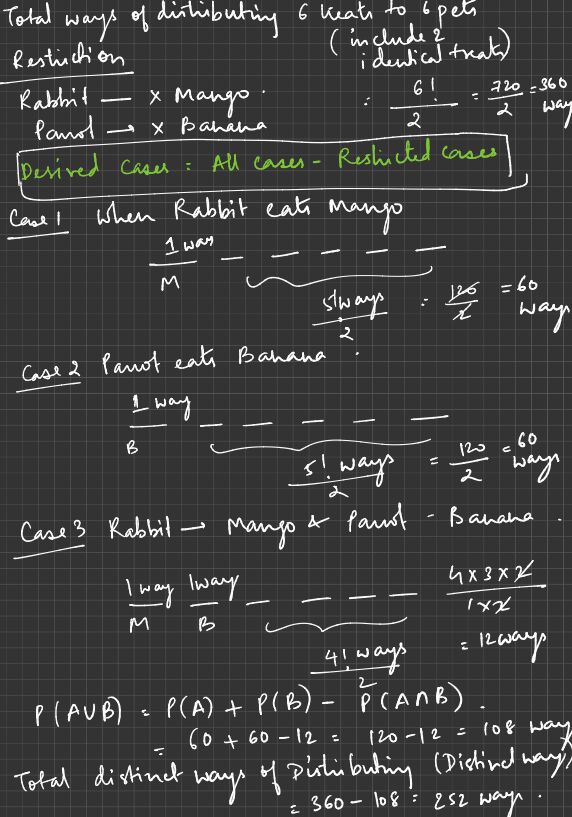 Total ways of distributing 6 treats to 6 pets
(include 2 identical treats)
Restriction
Rabbit — x Mango.
Parrot → x Banana
: 6!/2 = 720/2 = 360 way
Desired Cases : All cases - Restricted cases
Case 1 When Rabbit eats Mango
1 way _ _ _ _ _
M
5! ways/2 = 120/2 = 60 ways
Case 2 Parrot eats Banana.
1 way _ _ _ _ _
B
5! ways/2 = 120/2 = 60 ways
Case 3 Rabbit → Mango & Parrot - Banana.
1 way 1 way _ _ _ _
M B
4! ways/2
4x3x2/1x2
= 12 ways
P(AUB) = P(A) + P(B) - P(A∩B).
= 60 + 60 - 12 = 120 - 12 = 108 way
Total distinct ways of Distributing (Distinct way)
= 360 - 108 = 252 ways.